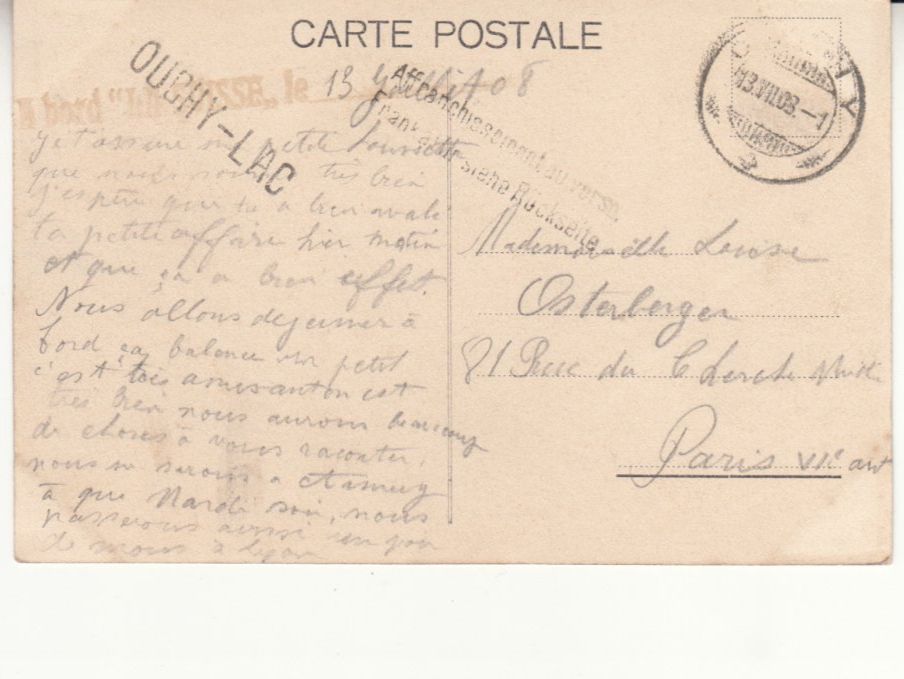 CARTE POSTALE
OUCHY-LAC
A bord "LA SUISSE", le 13 Juillet 08
Affranchissement au verso.
Frankatur siehe Rückseite
13.VII.08.-1
Je t'assure ma petite Louisette
que nous sommes très bien
j'espère que tu a bien avalé
ta petite affaire hier matin
et que ça a bien effet.
Nous allons dejeuner à
bord ça balance un petit
c'est très
très bien nous aurons beaucoup
de choses à vous raconter,
nous ne serons a
à que Mardi soir, nous
passerons aussi un jour
de moins à Lyon
Mademoiselle Louise
Osterberger
81 Rue du Cherche Midi
Paris VIe arr